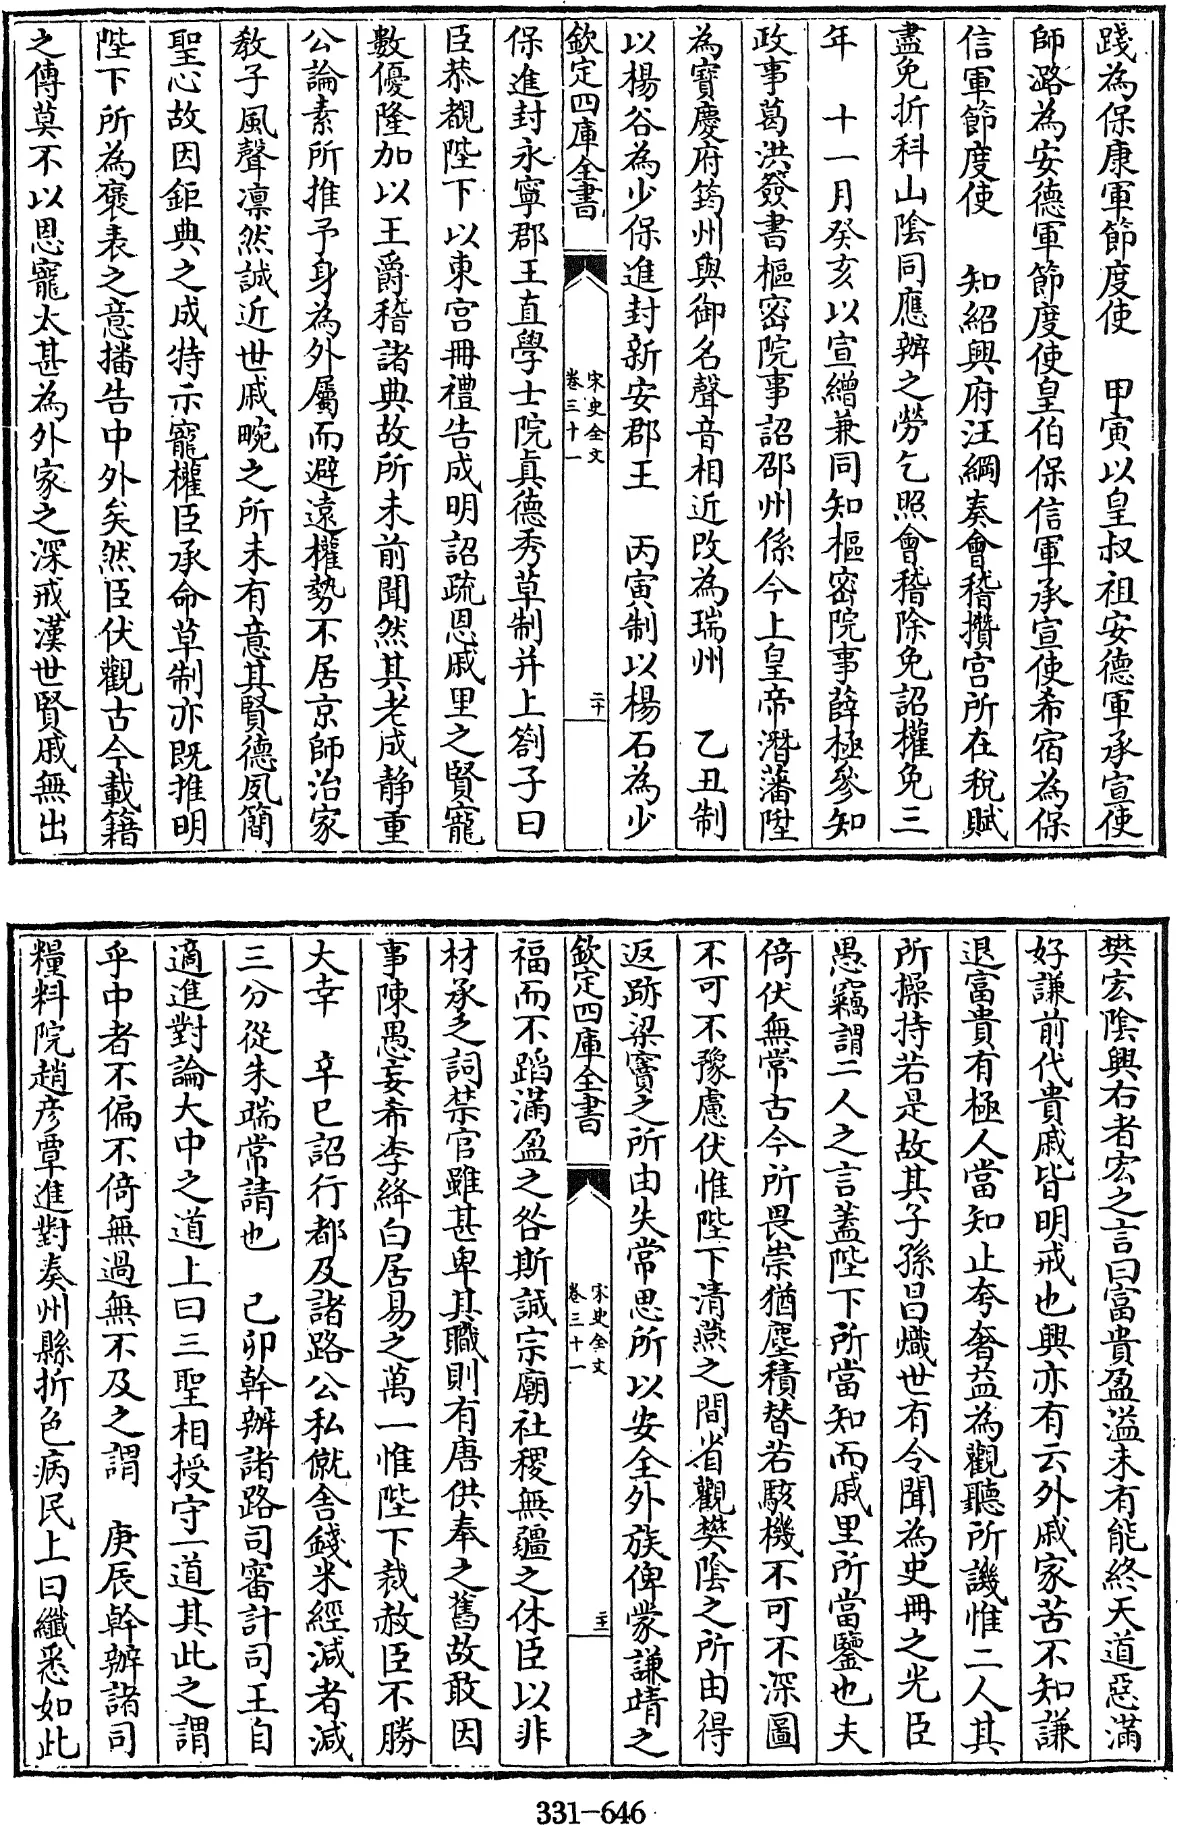 踐為保康軍節度使　甲寅以皇叔祖安德軍承宣使
師潞為安德軍節度使皇伯保信軍承宣使希宿為保
信軍節度使　知紹興府汪綱奏會稽攢宮所在稅賦
盡免折科山陰同應辦之勞乞照會稽除免詔權免三
年　十一月癸亥以宣繒兼同知樞密院事薛極參知
政事葛洪簽書樞密院事詔邵州係今上皇帝潛藩陞
為寶慶府筠州與御名聲音相近改為瑞州　乙丑制
以楊谷為少保進封新安郡王　丙寅制以楊石為少
欽定四庫全書
宋史全文
卷三十一
二十
保進封永寧郡王直學士院真德秀草制并上劄子曰
臣恭覩陛下以東宮冊禮告成明詔疏恩戚里之賢寵
數優隆加以王爵稽諸典故所未前聞然其老成靜重
公論素所推予身為外屬而避遠權勢不居京師治家
教子風聲凛然誠近世戚畹之所未有意其賢德夙簡
聖心故因鉅典之成特示寵權臣承命草制亦既推明
陛下所為褒表之意播告中外矣然臣伏觀古今載籍
之傳莫不以恩寵太甚為外家之深戒漢世賢戚無出
樊宏陰興右者宏之言曰富貴盈溢未有能終天道惡滿
好謙前代貴戚皆明戒也興亦有云外戚家苦不知謙
退富貴有極人當知止夸奢益為觀聽所譏惟二人其
所操持若是故其子孫昌熾世有令聞為史冊之光臣
愚竊謂二人之言蓋陛下所當知而戚里所當鑒也夫
倚伏無常古今所畏崇猶塵積替若駭機不可不深圖
不可不豫慮伏惟陛下清燕之間省觀樊陰之所由得
返跡梁竇之所由失常思所以安全外族俾蒙謙靖之
欽定四庫全書
宋史全文
卷三十一
主
福而不蹈滿盈之咎斯誠宗廟社稷無疆之休臣以非
材承乏詞禁官雖甚卑其職則有唐供奉之舊故敢因
事陳愚妄希李絳白居易之萬一惟陛下裁赦臣不勝
大幸　辛巳詔行都及諸路公私僦舍錢米經減者減
三分從朱端常請也　己卯幹辦諸路司審計司王自
適進對論大中之道上曰三聖相授守一道其此之謂
乎中者不偏不倚無過無不及之謂　庚辰幹辦諸司
糧料院趙彦覃進對奏州縣折色病民上曰纖悉如此
331-646